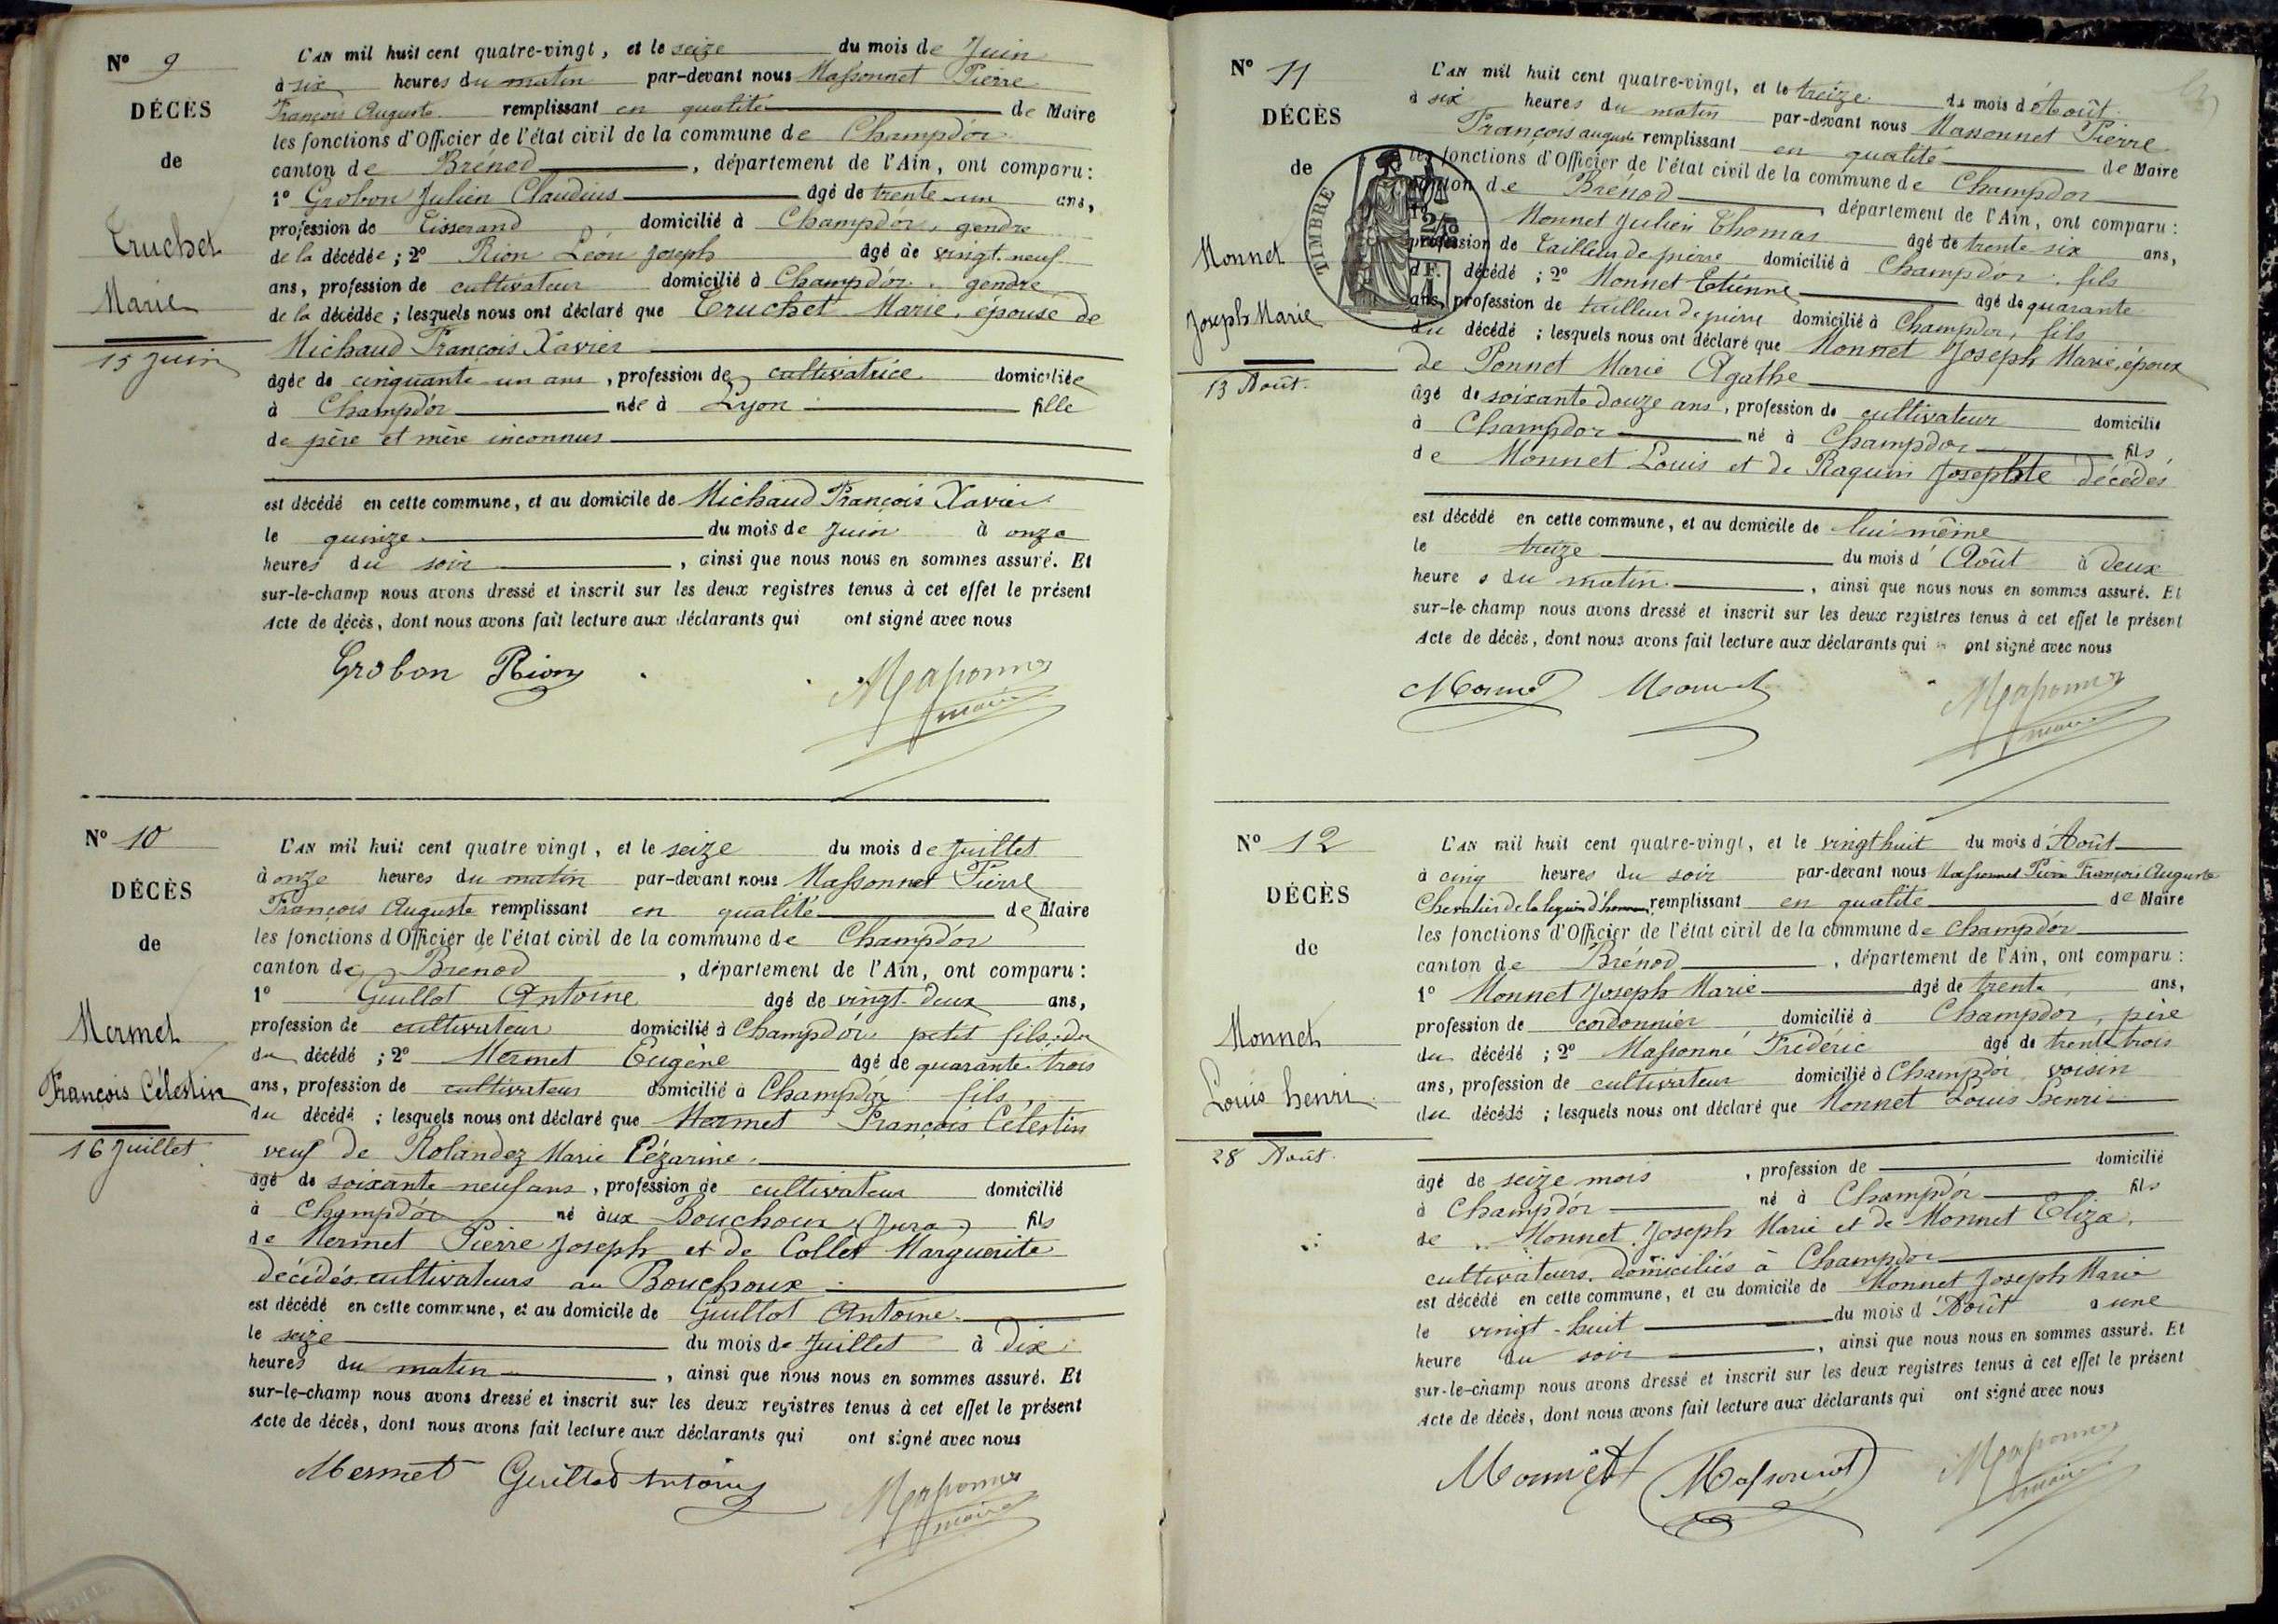 N° 9
DÉCÈS
de
Truchet
Marie
15 Juin
L'AN mil huit cent quatre-vingt, et le seize du mois de Juin
à six heures du matin par-devant nous Massonnet Pierre
François Auguste remplissant en qualité de Maire
les fonctions d'Officier de l'état civil de la commune de Champdor
canton de Brénod, département de l'Ain, ont comparu :
1° Grobon Julien Claudius âgé de trente-un ans,
profession de Tisserand domicilié à Champdor, gendre
de la décédée ; 2° Rion Léon Joseph âgé de vingt-neuf
ans, profession de cultivateur domicilié à Champdor, gendre
de la décédée ; lesquels nous ont déclaré que Truchet Marie, épouse de
Michaud François Xavier
âgée de cinquante-un ans, profession de cultivatrice domiciliée
à Champdor née à Lyon fille
de père et mère inconnus
est décédé en cette commune, et au domicile de Michaud François Xavier
le quinze du mois de Juin à onze
heures du soir, ainsi que nous nous en sommes assuré. Et
sur-le-champ nous avons dressé et inscrit sur les deux registres tenus à cet effet le présent
Acte de décès, dont nous avons fait lecture aux déclarants qui ont signé avec nous
Grobon Rion Massonnet
maire
N° 10
DÉCÈS
de
Mermet
François Célestin
16 Juillet
L'AN mil huit cent quatre vingt, et le seize du mois de Juillet
à onze heures du matin par-devant nous Massonnet Pierre
François Auguste remplissant en qualité de Maire
les fonctions d'Officier de l'état civil de la commune de Champdor
canton de Brénod, département de l'Ain, ont comparu :
1° Guillot Antoine âgé de vingt-deux ans,
profession de cultivateur domicilié à Champdor, petit fils du
du décédé ; 2° Mermet Eugène âgé de quarante-trois
ans, profession de cultivateur domicilié à Champdor fils,
du décédé ; lesquels nous ont déclaré que Mermet François Célestin
veuf de Rolandez Marie Cézarine
âgé de soixante-neuf ans, profession de cultivateur domicilié
à Champdor né aux Bouchoux (Jura) fils
de Mermet Pierre Joseph et de Collet Marguerite
décédés cultivateurs au Bouchoux
est décédé en cette commune, et au domicile de Guillot Antoine
le seize du mois de Juillet à dix
heures du matin, ainsi que nous nous en sommes assuré. Et
sur-le-champ nous avons dressé et inscrit sur les deux registres tenus à cet effet le présent
Acte de décès, dont nous avons fait lecture aux déclarants qui ont signé avec nous
Mermet Guillot Antoine Massonnet
maire
N° 11
DÉCÈS
de
Monnet
Joseph Marie
13 Août.
TIMBRE
L'AN mil huit cent quatre-vingt, et le treize du mois d'Août
à six heures du matin par-devant nous Massonnet Pierre
François auguste remplissant en qualité de Maire
les fonctions d'Officier de l'état civil de la commune de Champdor
canton de Brénod, département de l'Ain, ont comparu :
1° Monnet Julien Thomas âgé de trente six ans,
profession de tailleur de pierre domicilié à Champdor, fils
du décédé ; 2° Monnet Etienne âgé de quarante
ans, profession de tailleur de pierre domicilié à Champdor, fils
du décédé ; lesquels nous ont déclaré que Monnet Joseph Marie, époux
de Ponnet Marie Agathe
âgé de soixante douze ans, profession de cultivateur domicilié
à Champdor né à Champdor fils
de Monnet Louis et de Raquin Josephte décédés
est décédé en cette commune, et au domicile de lui même
le treize du mois d'Août à deux
heures du matin, ainsi que nous nous en sommes assuré. Et
sur-le-champ nous avons dressé et inscrit sur les deux registres tenus à cet effet le présent
Acte de décès, dont nous avons fait lecture aux déclarants qui ont signé avec nous
Monnet Monnet Massonnet
maire
N° 12
DÉCÈS
de
Monnet
Louis henri
28 Août.
L'AN mil huit cent quatre-vingt, et le vingt huit du mois d'Août
à cinq heures du soir par-devant nous Massonnet Pierre François Auguste
Chevalier de la légion d'honneur remplissant en qualité de Maire
les fonctions d'Officier de l'état civil de la commune de Champdor
canton de Brénod, département de l'Ain, ont comparu :
1° Monnet Joseph Marie âgé de trente ans,
profession de cordonnier domicilié à Champdor, père
du décédé ; 2° Massonné Frédéric âgé de trente trois
ans, profession de cultivateur domicilié à Champdor voisin
du décédé ; lesquels nous ont déclaré que Monnet Louis henri
âgé de seize mois, profession de domicilié
à Champdor né à Champdor fils
de Monnet Joseph Marie et de Monnet Eliza,
cultivateurs, domiciliés à Champdor
est décédé en cette commune, et au domicile de Monnet Joseph Marie
le vingt-huit du mois d'Août à une
heure du soir, ainsi que nous nous en sommes assuré. Et
sur-le-champ nous avons dressé et inscrit sur les deux registres tenus à cet effet le présent
Acte de décès, dont nous avons fait lecture aux déclarants qui ont signé avec nous
Monnet Massonnet Massonnet
maire